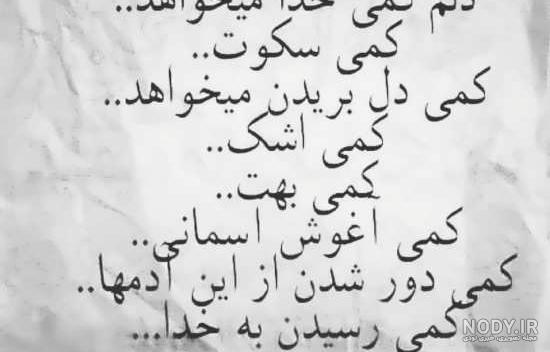 دلم کمی خدا میخواهد..
کمی سکوت..
کمی دل بریدن میخواهد..
کمی اشک..
کمی بهت..
کمی آغوش اسمانی..
کمی دور شدن از این آدمها..
کمی رسیدن به خدا...
NODY.IR
مجله تصویری، خبری نودی